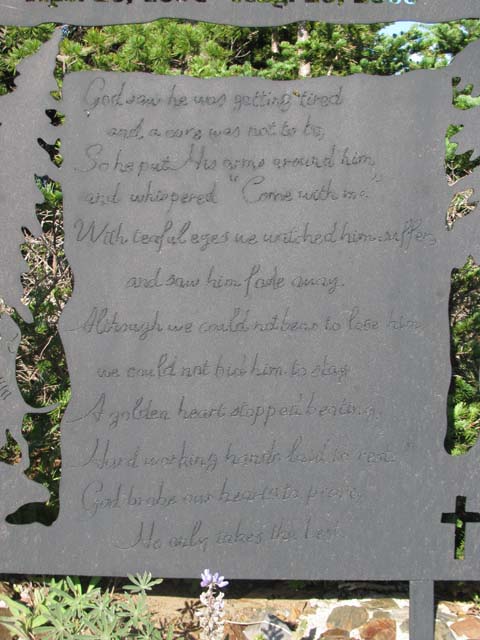 God saw he was getting tired
and, a cure was not to be,
So he put His arms around him,
and whispered "Come with me."
With tearful eyes we watched him suffer,
and saw him fade away.
Although we could not bear to lose him,
we could not bid him to stay.
A golden heart stopped beating,
Hard working hands laid to rest
God broke our hearts to prove,
He only takes the best.